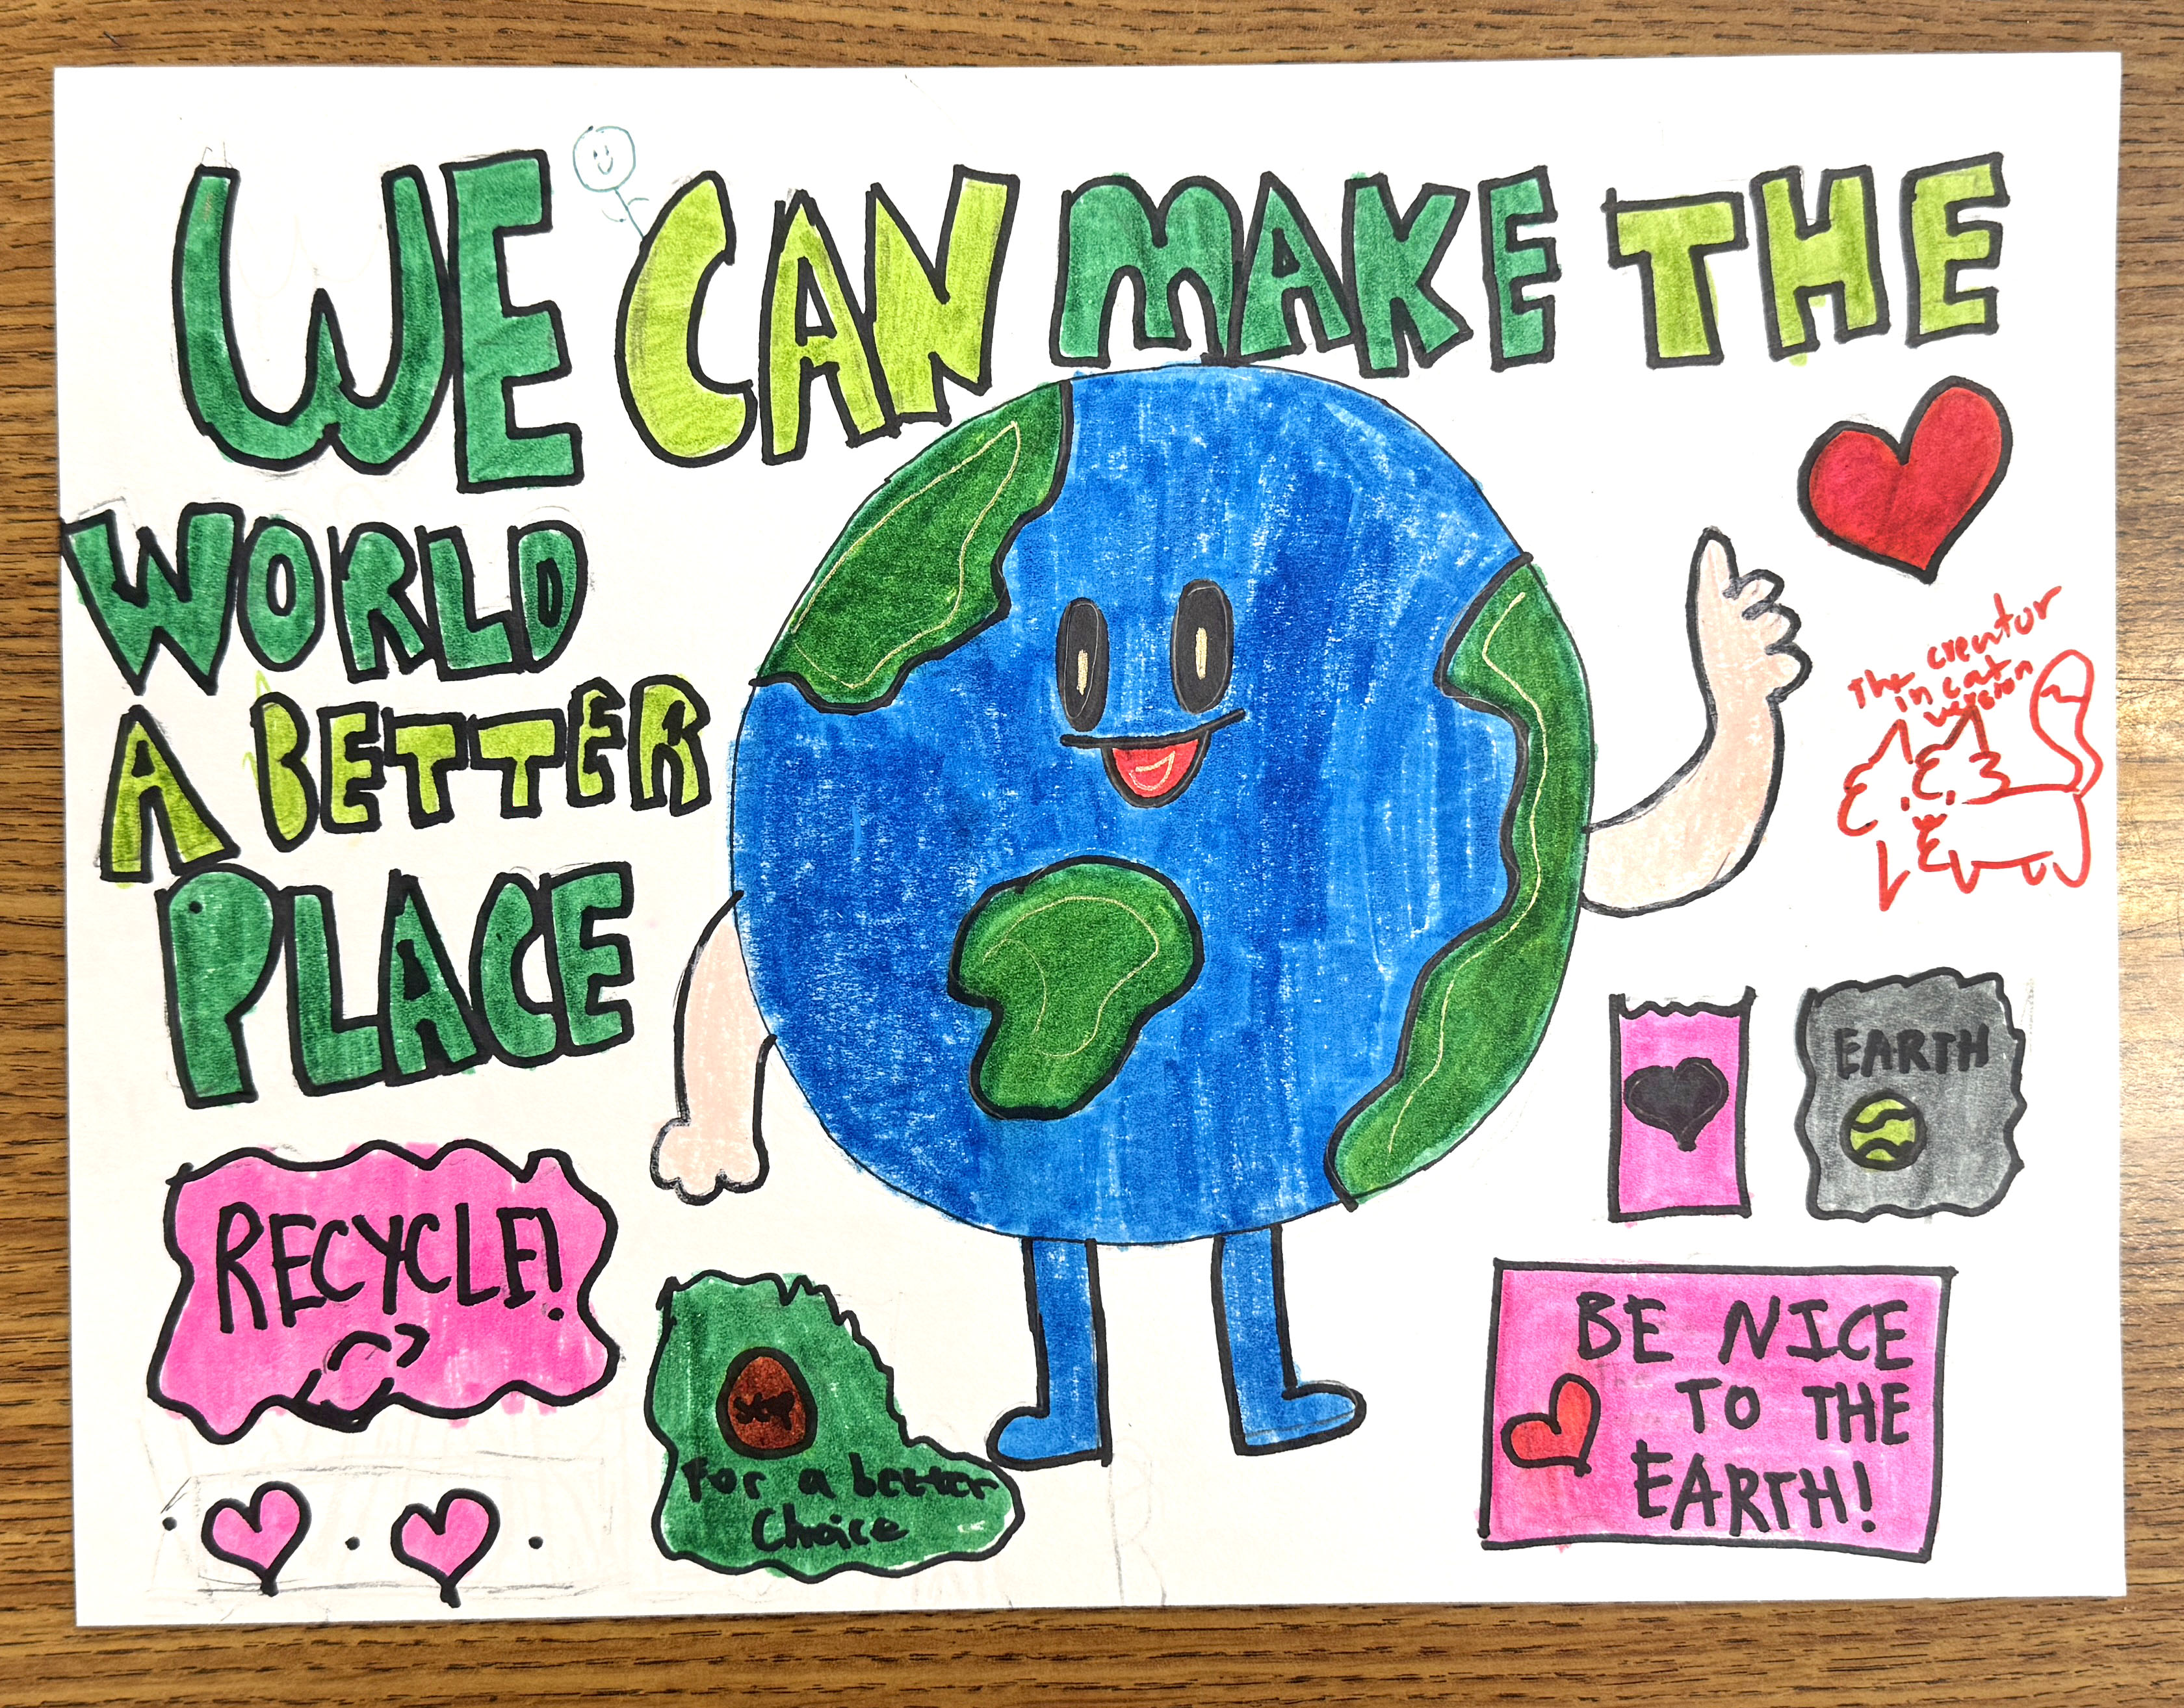 WE CAN MAKE THE
WORLD
A BETTER
PLACE
The creator
in cat
version
EARTH
RECYCLE!
For a better
Choice
BE NICE
TO THE
EARTH!